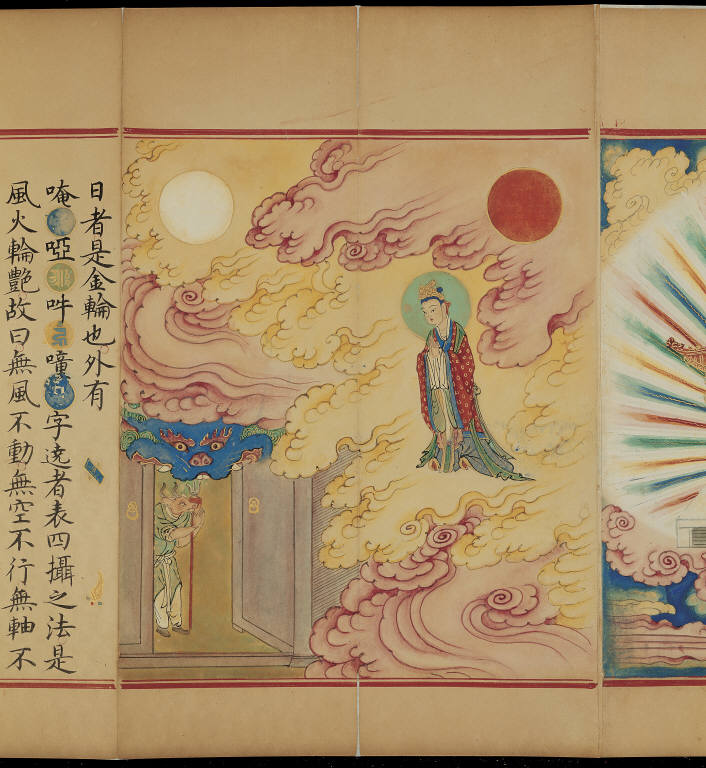 日者是金輪也外有
唵啞吽㗛字遶者表四攝之法是
風火輪艷故曰無風不動無空不行無軸不